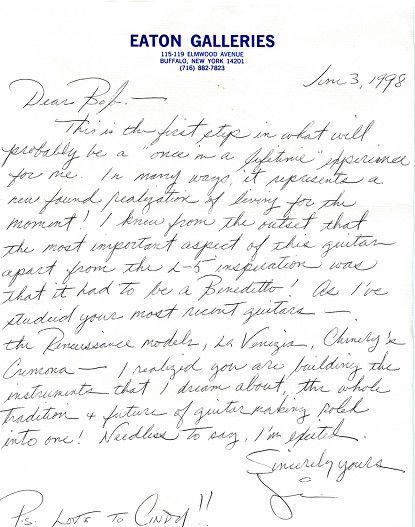 EATON GALLERIES
115-119 ELMWOOD AVENUE
BUFFALO, NEW YORK 14201
(716) 882-7823
Jun 3, 1998
Dear Bob. —
This is the first step in what will
probably be a "once in a lifetime" experience
for me. In many ways, it represents a
new found realization of living for the
moment! I knew from the outset that
the most important aspect of this guitar
apart from the L-5 inspiration was
that it had to be a Benedetto! As I've
studied your most recent guitars —
the Renaissance models, La Venezia, Chinery's
Cremona — I realized you are building the
instruments that I dream about, the whole
tradition & future of guitar making rolled
into one! Needless to say, I'm excited.
Sincerely yours
P.S. LOVE TO CINDY!!